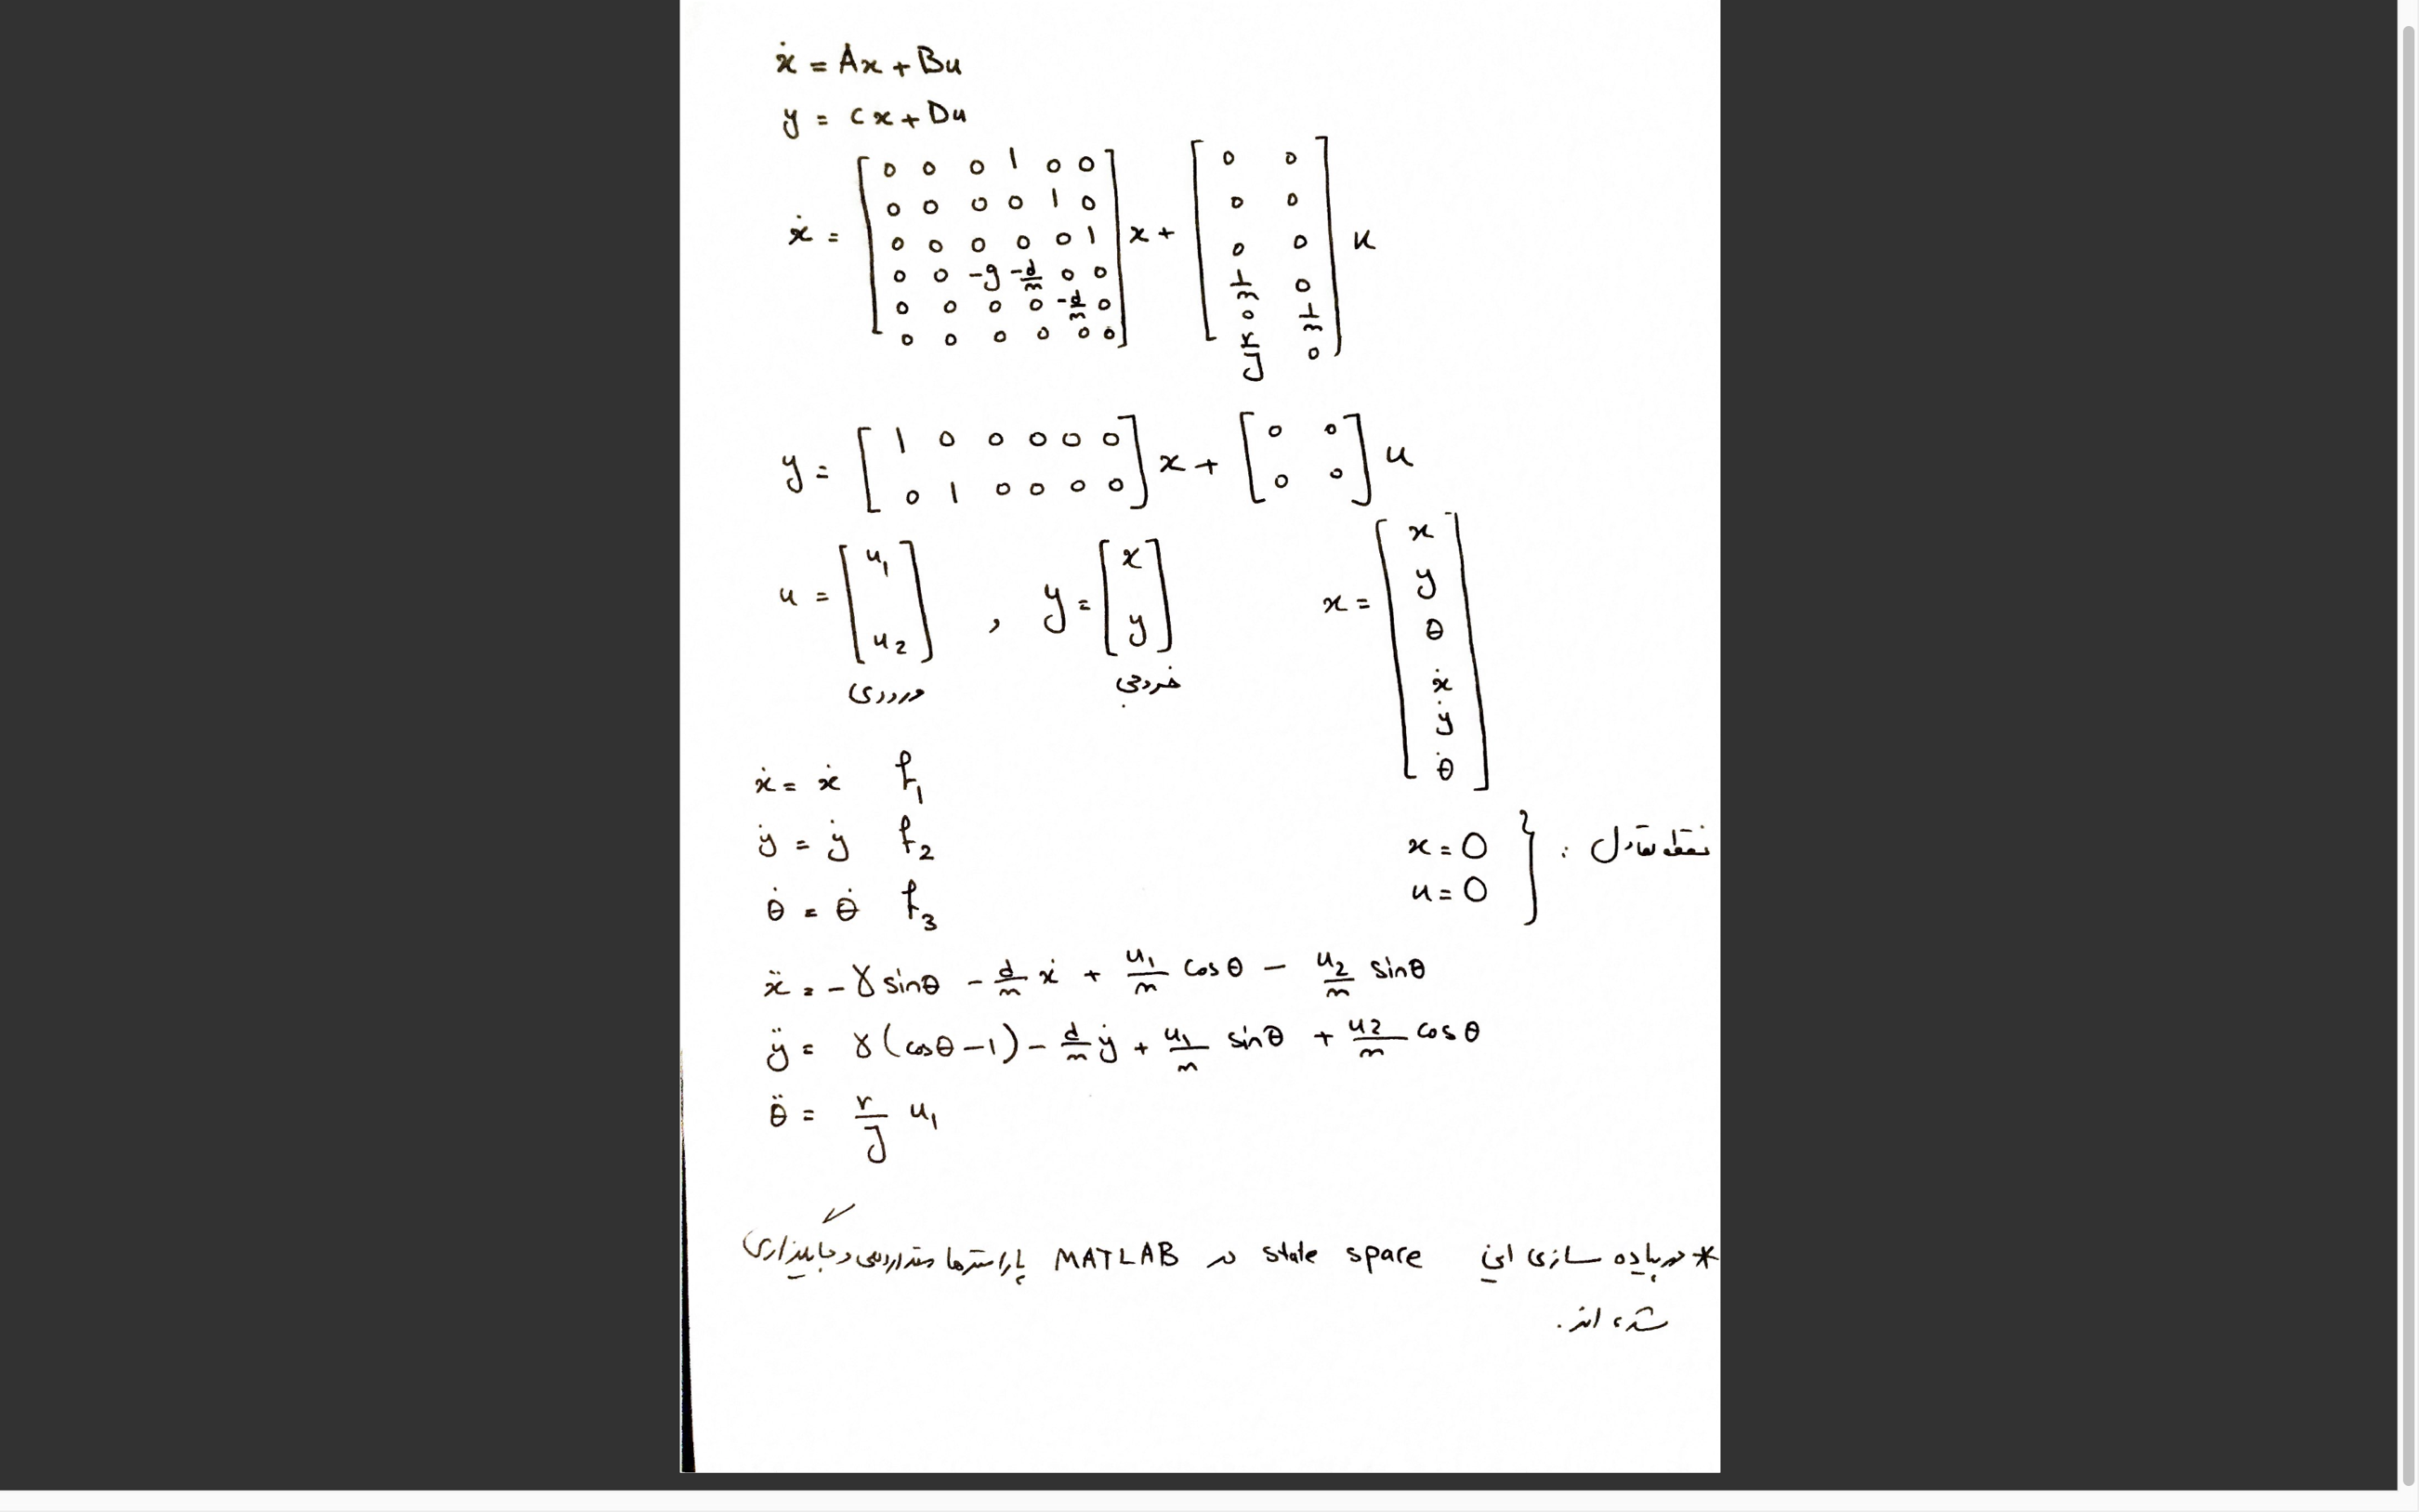 ẋ = Ax + Bu
y = Cx + Du
ẋ = [0 0 0 1 0 0; 0 0 0 0 1 0; 0 0 0 0 0 1; 0 0 -g -d/m 0 0; 0 0 0 0 -d/m 0; 0 0 0 0 0 0] x + [0 0; 0 0; 0 0; 1/m 0; 0 1/m; r/J 0] u
y = [1 0 0 0 0 0; 0 1 0 0 0 0] x + [0 0; 0 0] u
u = [u₁; u₂] , y = [x; y] x = [x; y; θ; ẋ; ẏ; θ̇]
ورودی خروجی
ẋ = ẋ f₁
ẏ = ẏ f₂
θ̇ = θ̇ f₃
نقطه تعادل : { x = 0
u = 0
ẍ = -γ sinθ - d/m ẋ + u₁/m cosθ - u₂/m sinθ
ÿ = γ(cosθ - 1) - d/m ẏ + u₁/m sinθ + u₂/m cosθ
θ̈ = r/J u₁
* در پیاده سازی این state space در MATLAB پارامترها مقداردهی و جایگذاری
شده اند.